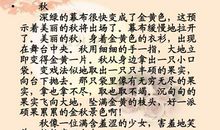 秋
深绿的幕布很快变成了金黄色，这预
示着美丽的秋将出场了。幕布缓慢地拉开
了。美丽的秋，身着金黄色的衣衫，出现
在舞台中央。秋用细细的手一指，大地立
即变得金黄一片。秋从身边拿出一只小口
袋，变戏法似地取出一只只丰硕的果实，
向台下抛去。那只袋里像有无穷无尽的果
实，拿也拿不尽，取也取不竭。沉甸甸的
果实飞向大地，坠满金黄的枝头，好一派
硕果累累的金秋景色啊！
秋像一位满含羞涩的少女，害羞地笑